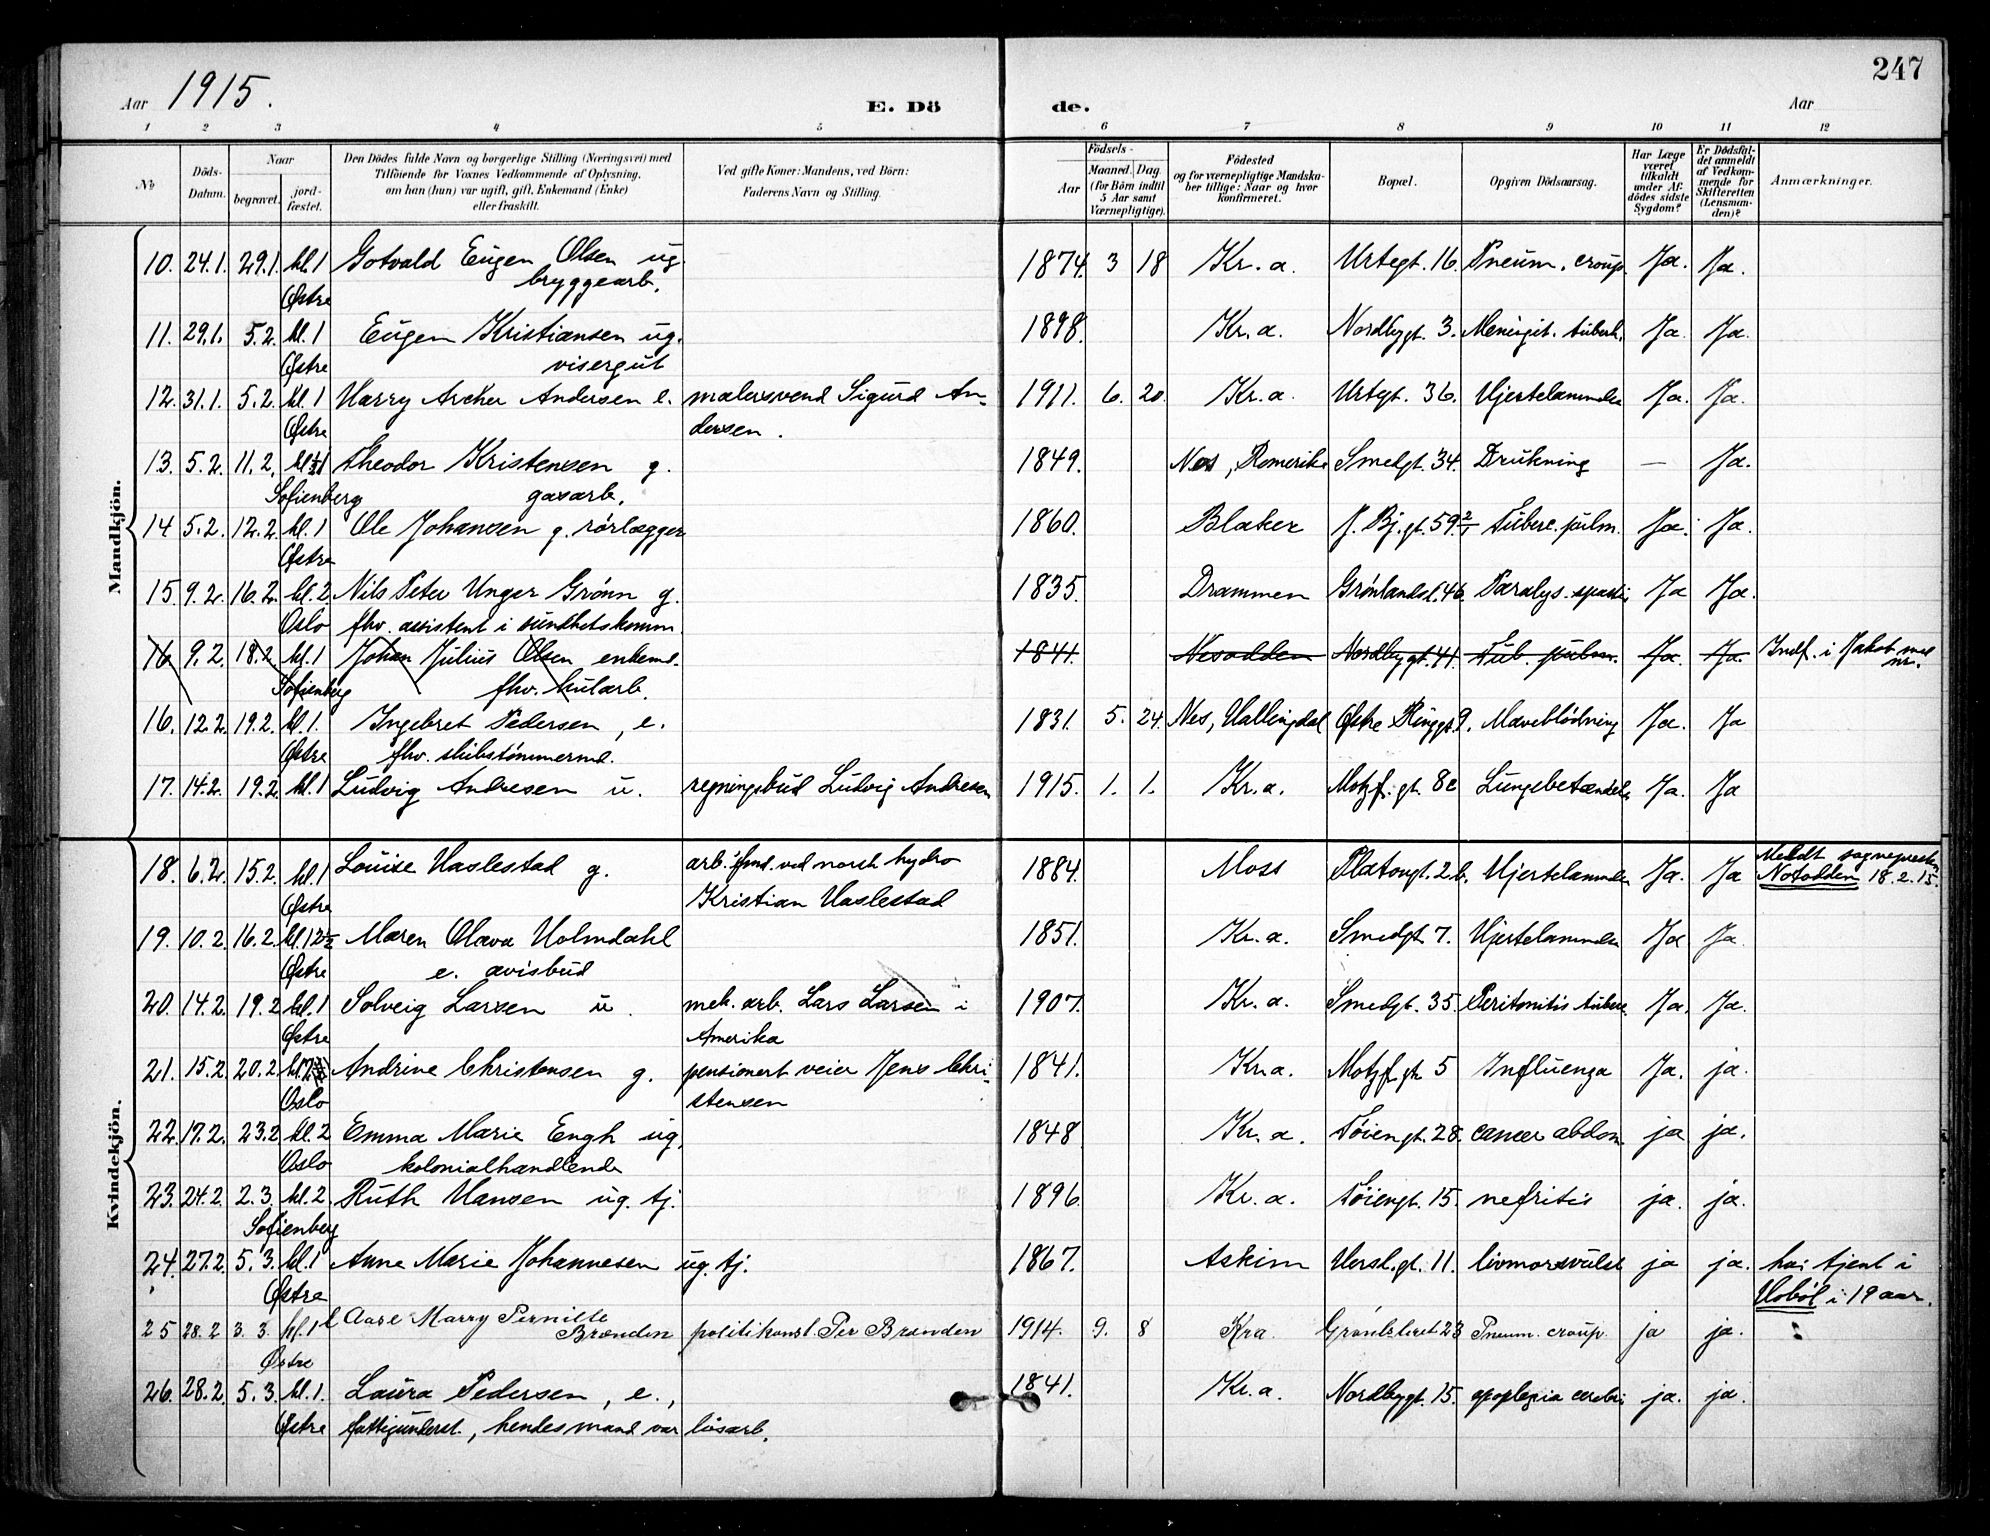 247
Aar 1915. E. Dö de. Aar
1 2 3 4 5 6 7 8 9 10 11 12
No Döds-Datum. Naar begravet. jordfæstet. Den Dödes fulde Navn og borgerlige Stilling (Næringsvei) med Tilföiende for Voxnes Vedkommende af Oplysning, om han (hun) var ugift, gift, Enkemand (Enke) eller fraskilt. Ved gifte Koner: Mandens, ved Börn: Faderens Navn og Stilling. Födsels- Aar Maaned. Dag. (for Börn indtil 5 Aar samt Værnepligtige). Födested og for værnepligtige Mandskaber tillige: Naar og hvor konfirmeret. Bopæl. Opgiven Dödsaarsag. Har Læge været tilkaldt under Afdödes sidste Sygdom? Er Dödsfaldet anmeldt af Vedkommende for Skifteretten (Lensmanden)? Anmærkninger.
Mandkjön.
10. 24.1. 29.1. kl. 1 Gotvald Eugen Olsen ug. 1874. 3 18 Kr. a. Urtegt. 16. Pneum. croup. Ja. Ja.
Østre bryggearb.
11. 29.1. 5.2. kl. 1 Eugen Kristiansen ug. 1898. Kr. a. Nordbygt. 3. Meningit. tuberk. Ja. Ja.
Østre visergut
12. 31.1. 5.2. kl. 1 Harry Archer Andersen e. malersvend Sigurd An- 1911. 6. 20. Kr. a. Urtegt. 36. Hjertelammelse Ja. Ja.
Østre dersen.
13. 5.2. 11.2. Theodor Kristensen g. 1849. Nes, Romerike Smedgt. 34. Drukning — Ja.
Sofienberg gasarb.
14 5.2. 12.2. kl. 1 Ole Johansen g. rørlægger 1860. Blaker J. Bj. gt. 59. Tuberc. pulm. Ja. Ja.
Østre
15. 9.2. 16.2. kl. 2. Nils Peter Unger Grønn g. 1835. Drammen Grønlandsl. 46. Paralys. spastic Ja Ja.
Oslo fhv. assistent i sundhetskomm.
16 9.2. 18.2. kl. 1 Johan Julius Olsen enkem. 1841. Nesodden Nordbygt. 41. Tub. pulm. Ja. Ja. Indf. i Jakob med
Sofienberg fhv. kularb. nr.
16. 12.2. 19.2. kl. 1. Ingebret Pedersen, e. 1831. 5. 24. Nes, Hallingdal Østre Plinggt. 9. Maveblödning Ja. Ja
Østre fhv. skibstømmerm.
17. 14.2. 19.2. kl. 1 Ludvig Andresen u. regningsbud Ludvig Andresen 1915. 1. 1. Kr. a. Motzf. gt. 8c Lungebetændelse Ja. Ja
Kvindekjön.
18. 6.2. 15.2. kl. 1 Louise Haslestad g. arb. fmd. ved norsk hydro 1884. Moss Platougt. 2b. Hjertelammelse Ja. Ja Meldt sognepresten
Østre Kristian Haslestad Notodden 18.2.15.
19. 10.2. 16.2. kl. 12½ Maren Olava Holmdahl 1851. Kr. a. Smedgt. 7. Hjertelammelse Ja Ja.
Østre e. avisbud
20. 14.2. 19.2 kl. 1 Solveig Larsen u. mek. arb. Lars Larsen i 1907. Kr. a. Smedgt. 35. Peritonitis tuberc. Ja. Ja.
Østre Amerika
21. 15.2. 20.2. Andrine Christensen g. pensionert veier Jens Chri- 1841. Kr. a. Motzf. gt. 5 Influenza Ja. ja.
Oslo stensen
22. 17.2. 23.2 kl. 2 Emma Marie Engh ug. 1848 Kr. a. Töiengt. 28. cancer abdom ja ja.
Oslo kolonialhandlende
23. 24.2. 2.3. kl. 2 Ruth Hansen ug. tj. 1896. Kr. a. Töiengt. 15. nefritis ja. ja.
Sofienberg
24. 27.2. 5.3. kl. 1 Anne Marie Johannesen ug. tj. 1867. Askim Hersl. gt. 11. livmorsvulst ja ja. har tjent i
Østre Hobøl i 19 aar.
25 28.2 3.3. kl. 1 Aase Marry Pernille
Brænden politikonst. Per Brænden 1914. 9. 8 Kra. Grønlsleret 23 Pneum. croup. ja ja.
Østre
26. 28.2. 5.3. kl. 1. Laura Pedersen, e., 1841. Kr. a. Nordbygt. 15. apoplexia cerebri ja. ja.
Østre fattigunderst., hendes mand var løsarb.